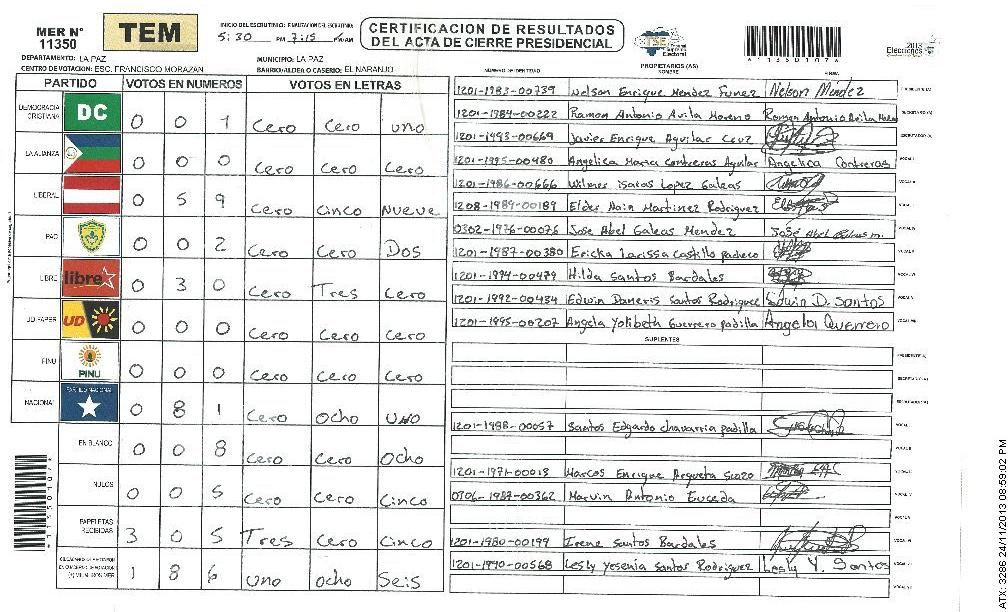 MER N°
11350
TEM
INICIO DEL ESCRUTINIO: FINALIZACION DEL ESCRUTINIO:
5:30 PM 7:15 PM/AM
CERTIFICACION DE RESULTADOS
DEL ACTA DE CIERRE PRESIDENCIAL
TSE
Tribunal Supremo Electoral
2013
Elecciones
DEPARTAMENTO: LA PAZ
MUNICIPIO: LA PAZ
CENTRO DE VOTACION: ESC. FRANCISCO MORAZAN
BARRIO/ALDEA O CASERIO: EL NARANJO
PROPIETARIOS (AS)
NUMERO DE IDENTIDAD NOMBRE FIRMA
PARTIDO VOTOS EN NUMEROS VOTOS EN LETRAS
DEMOCRACIA CRISTIANA DC 0 0 1 Cero Cero uno
LA ALIANZA 0 0 0 Cero Cero Cero
LIBERAL 0 5 9 Cero Cinco Nueve
PAC 0 0 2 Cero Cero Dos
LIBRE libre 0 3 0 Cero Tres Cero
UD/FAPER UD 0 0 0 Cero Cero Cero
PINU PINU 0 0 0 Cero Cero Cero
NACIONAL PARTIDO NACIONAL 0 8 1 Cero Ocho Uno
EN BLANCO 0 0 8 Cero Cero Ocho
NULOS 0 0 5 Cero Cero Cinco
PAPELETAS RECIBIDAS 3 0 5 Tres Cero Cinco
1 8 6 Uno Ocho Seis
1201-1983-00739 Nelson Enrique Mendez Funez Nelson Mendez
1201-1984-00222 Ramon Antonio Avila Moreno Ramon Antonio Avila
1201-1993-00669 Javier Enrique Aguilar Cruz
1201-1995-00480 Angelica Maria Contreras Aguilar Angelica Contreras
1201-1986-00666 Wilmer isaias Lopez Galeas
1208-1989-00189 Elder Nain Martinez Rodriguez
0302-1976-00076 Jose Abel Galeas Mendez José Abel
1201-1987-00380 Ericka Larissa Castillo pacheco
1201-1994-00479 Hilda Santos Bardales
1201-1992-00434 Edwin Daneris Santos Rodriguez Edwin D. Santos
1201-1995-00207 Angela Yolibeth Guerrero padilla Angela Guerrero
SUPLENTES
1201-1988-00057 Santos Edgardo chavarria padilla
1201-1971-00018 Marcos Enrique Argueta
0706-1987-00362 Marvin Antonio Euceda
1201-1980-00199 Irene Santos Bardales
1201-1990-00568 Lesly Yesenia Santos Rodriguez Lesly Y. Santos
ATX: 3286 24/11/2013 08:59:02 PM